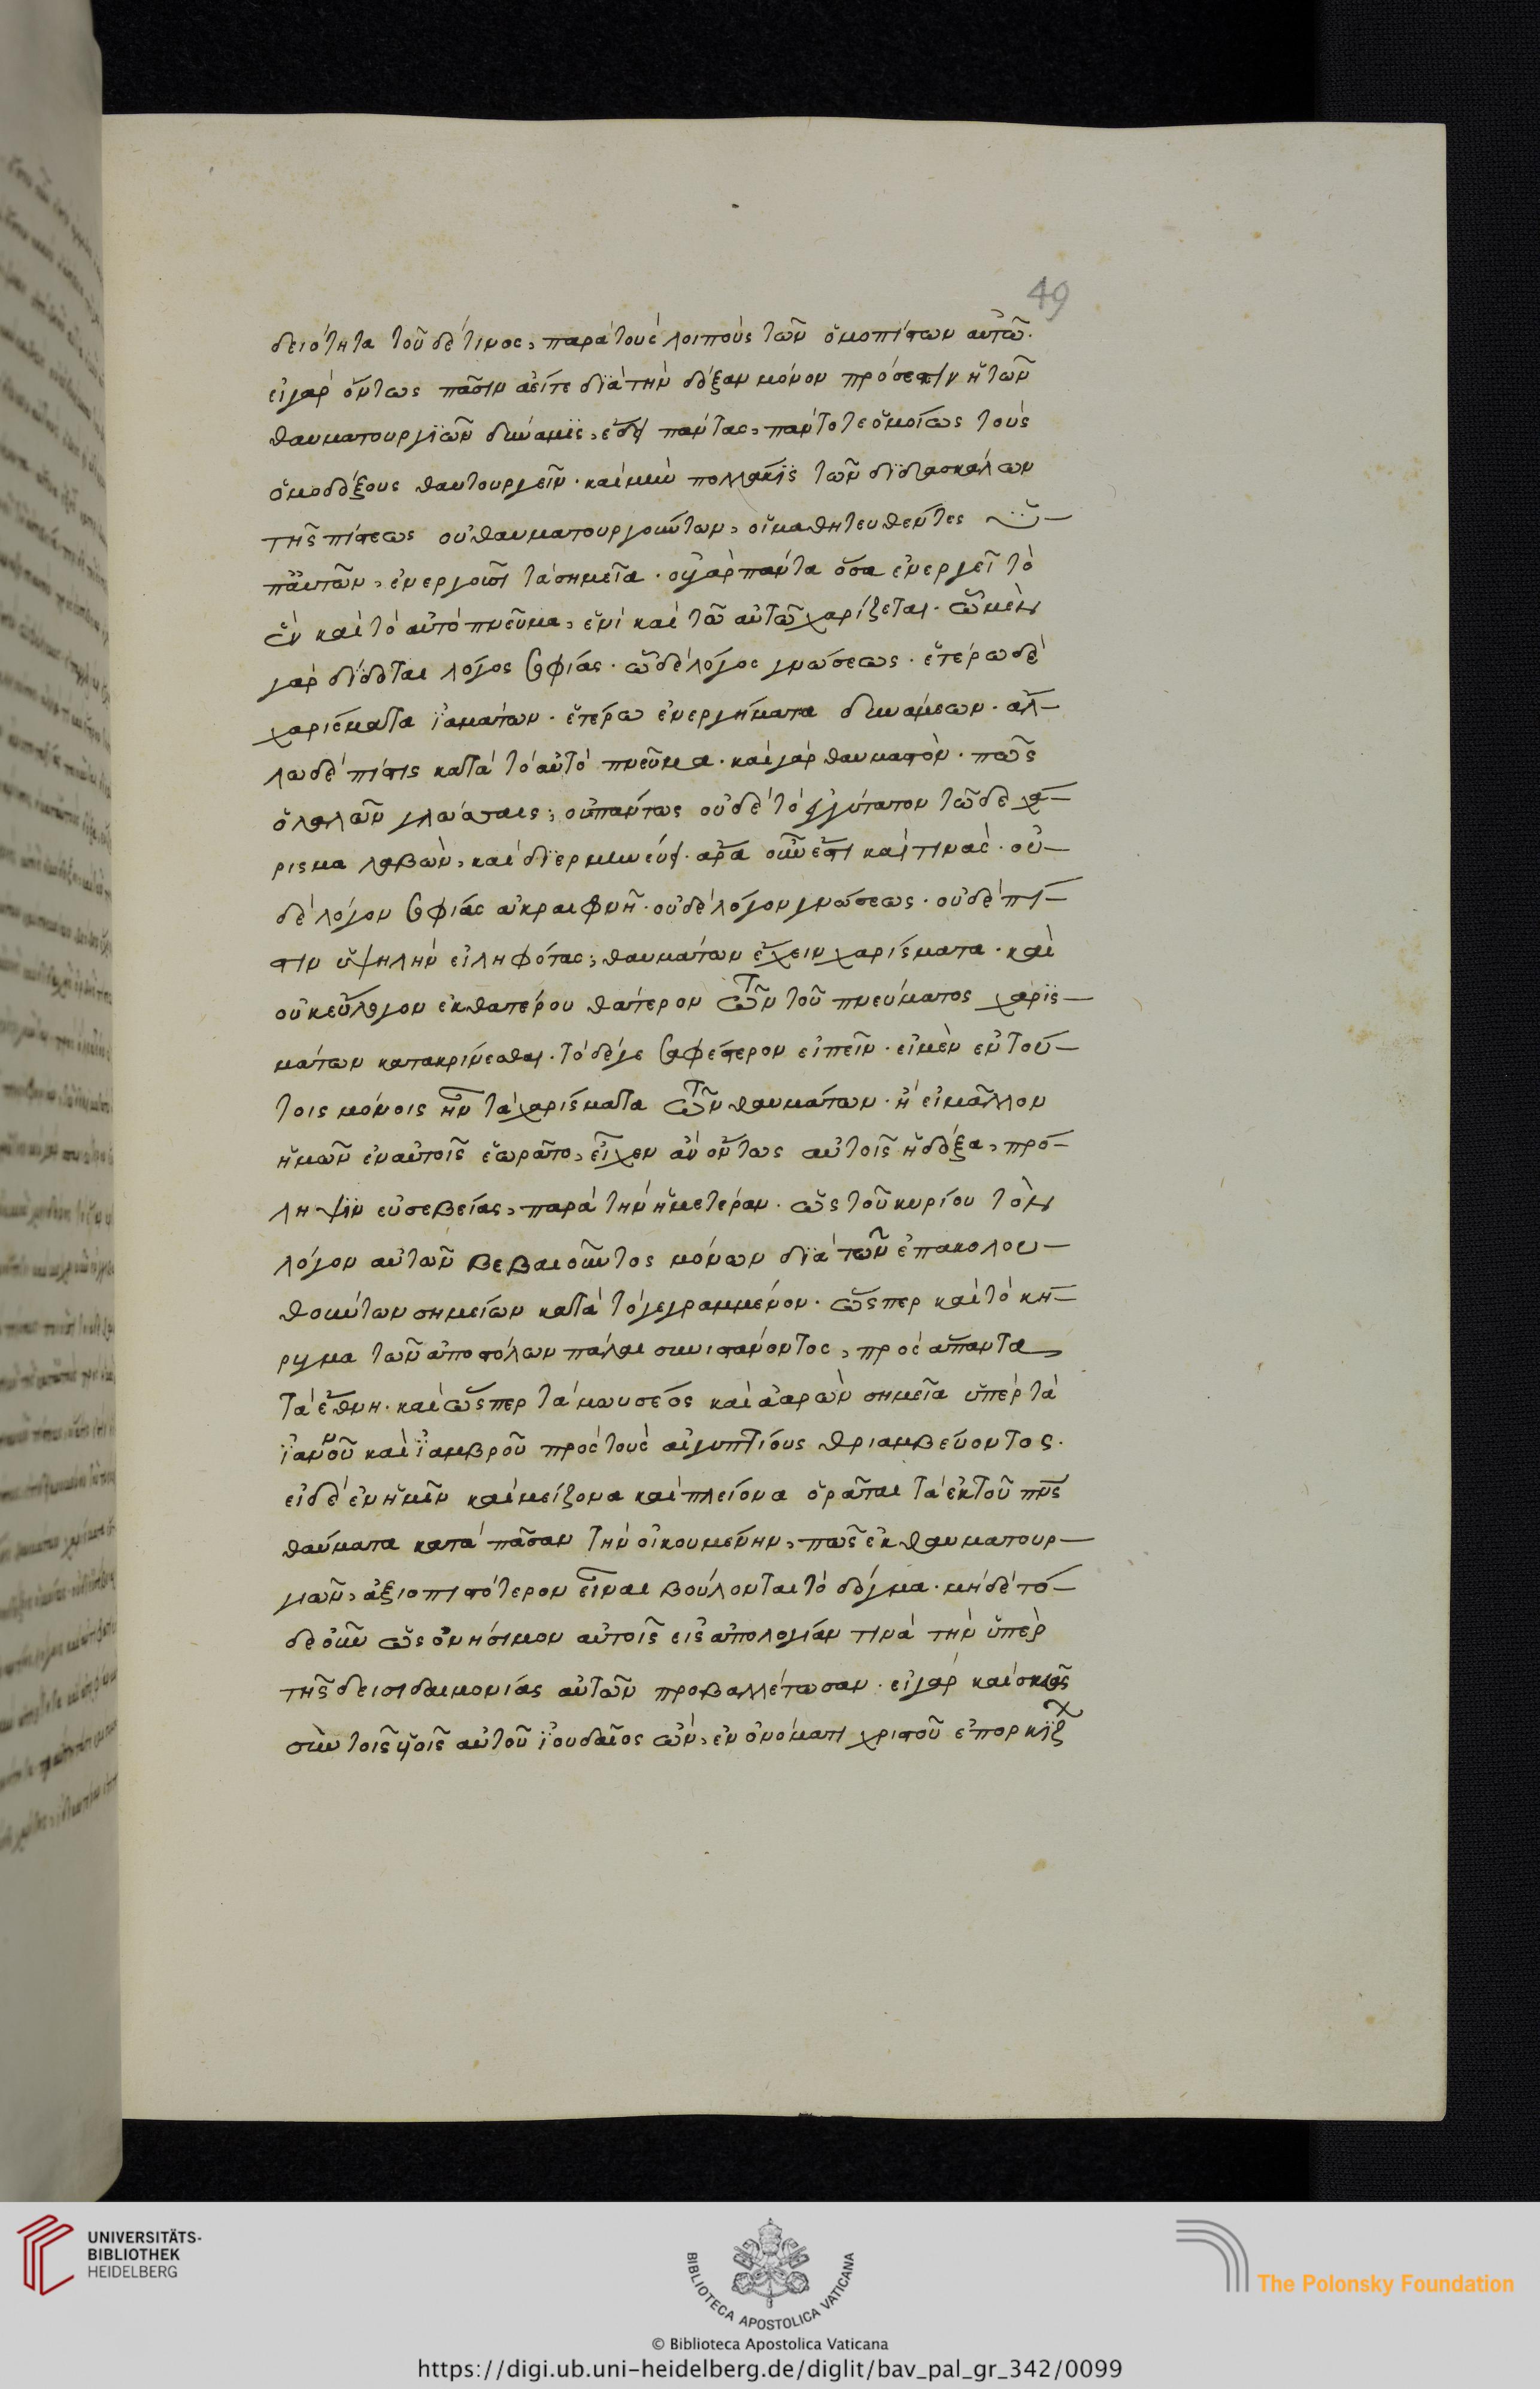 49
δειότητα τοῦ δέ τινος, παρὰ τοὺς λοιποὺς τῶν ὁμοπίστων αὐτῶ.
εἰ γὰρ ὄντως πᾶσιν ἀεί τε διὰ τὴν δόξαν μόνον πρόσεστιν ἡ τῶν
θαυματουργϊῶν δύναμϊς, ἔδει πάντας, πάντοτε ὁμοίως τοὺς
ὁμοδόξους θαυτουργεῖν. καὶ μὴν πολλάκϊς τῶν δϊδασκάλων
τῆς πίστεως οὐ θαυματουργούντων, οἱ μαθητευθέντες ὑ-
π' αὐτῶν, ἐνεργοῦσι τὰ σημεῖα. οὐ γὰρ πάντα ὅσα ἐνεργεῖ τὸ
ἓν καὶ τὸ αὐτὸ πνεῦμα, ἑνὶ καὶ τῶ αὐτῶ χαρίζεται. ὧ μὲν
γὰρ δίδοται λόγος σοφίας. ὧ δὲ λόγος γνώσεως. ἑτέρω δὲ
χαρίσματα ἰαμάτων. ἑτέρω ἐνεργήματα δυνάμεων. ἄλ-
λω δὲ πίστις κατὰ τὸ αὐτὸ πνεῦμα. καὶ γὰρ θαυμαστὸν. πῶς
ὁ λαλῶν γλώσσαις, οὐ πάντως οὐδὲ τὸ ἐγγύτατον τῶδε χά-
ρισμα λαβὼν, καὶ διερμηνεύει. ἆρα οὖν ἔστι καί τινας. οὐ-
δὲ λόγον σοφίας ἀκραιφνῆ. οὐδὲ λόγον γνώσεως. οὐδὲ πί-
στιν ὑψηλὴν εἰληφότας, θαυμάτων ἔχειν χαρίσματα. καὶ
οὐκ εὔλογον ἐκ θατέρου θάτερον τῶν τοῦ πνεύματος χαρϊς-
μάτων κατακρίνεσθαι. τὸ δέ γε σαφέστερον εἰπεῖν. εἰ μὲν ἐν τού-
τοις μόνοις ἦν τὰ χαρίσματα τῶν θαυμάτων. ἢ εἰ μᾶλλον
ἡμῶν ἐν αὐτοῖς ἑωρᾶτο, εἶχεν ἂν ὄντως αὐτοῖς ἡ δόξα, πρό-
ληψϊν εὐσεβείας, παρὰ τὴν ἡμετέραν. ὡς τοῦ κυρίου τὸν
λόγον αὐτῶν βεβαιοῦντος μόνων διὰ τῶν ἐπακολου-
θούντων σημείων κατὰ τὸ γεγραμμένον. ὥσπερ καὶ τὸ κή-
ρυγμα τῶν ἀποστόλων πάλαι συνιστάνοντος, πρὸς ἅπαντα
τὰ ἔθνη. καὶ ὥσπερ τὰ μωυσέος καὶ ἀαρὼν σημεῖα ὑπὲρ τὰ
ἰαννοῦ καὶ ἰαμβροῦ πρὸς τοὺς αἰγυπτίους θριαμβεύοντος.
εἰ δὲ ἐν ἡμῖν καὶ μείζονα καὶ πλείονα ὁρᾶται τὰ ἐκ τοῦ πνς
θαύματα κατὰ πᾶσαν τὴν οἰκουμένην, πῶς ἐκ θαυματουρ-
γιῶν, ἀξιοπιστότερον εἶναι βούλονται τὸ δόγμα. μὴ δὲ τό-
δε οὖν ὡς ὀνήσιμον αὐτοῖς εἰς ἀπολογίαν τινὰ τὴν ὑπὲρ
τῆς δεισιδαιμονίας αὐτῶν προβαλλέτωσαν. εἰ γὰρ καὶ σκευᾶς
σὺν τοῖς υἱοῖς αὐτοῦ ἰουδαῖος ὢν, ἐν ὀνόματι χριστοῦ ἐπορκιζ
UNIVERSITÄTS-
BIBLIOTHEK
HEIDELBERG
BIBLIOTECA APOSTOLICA VATICANA
© Biblioteca Apostolica Vaticana
The Polonsky Foundation
https://digi.ub.uni-heidelberg.de/diglit/bav_pal_gr_342/0099